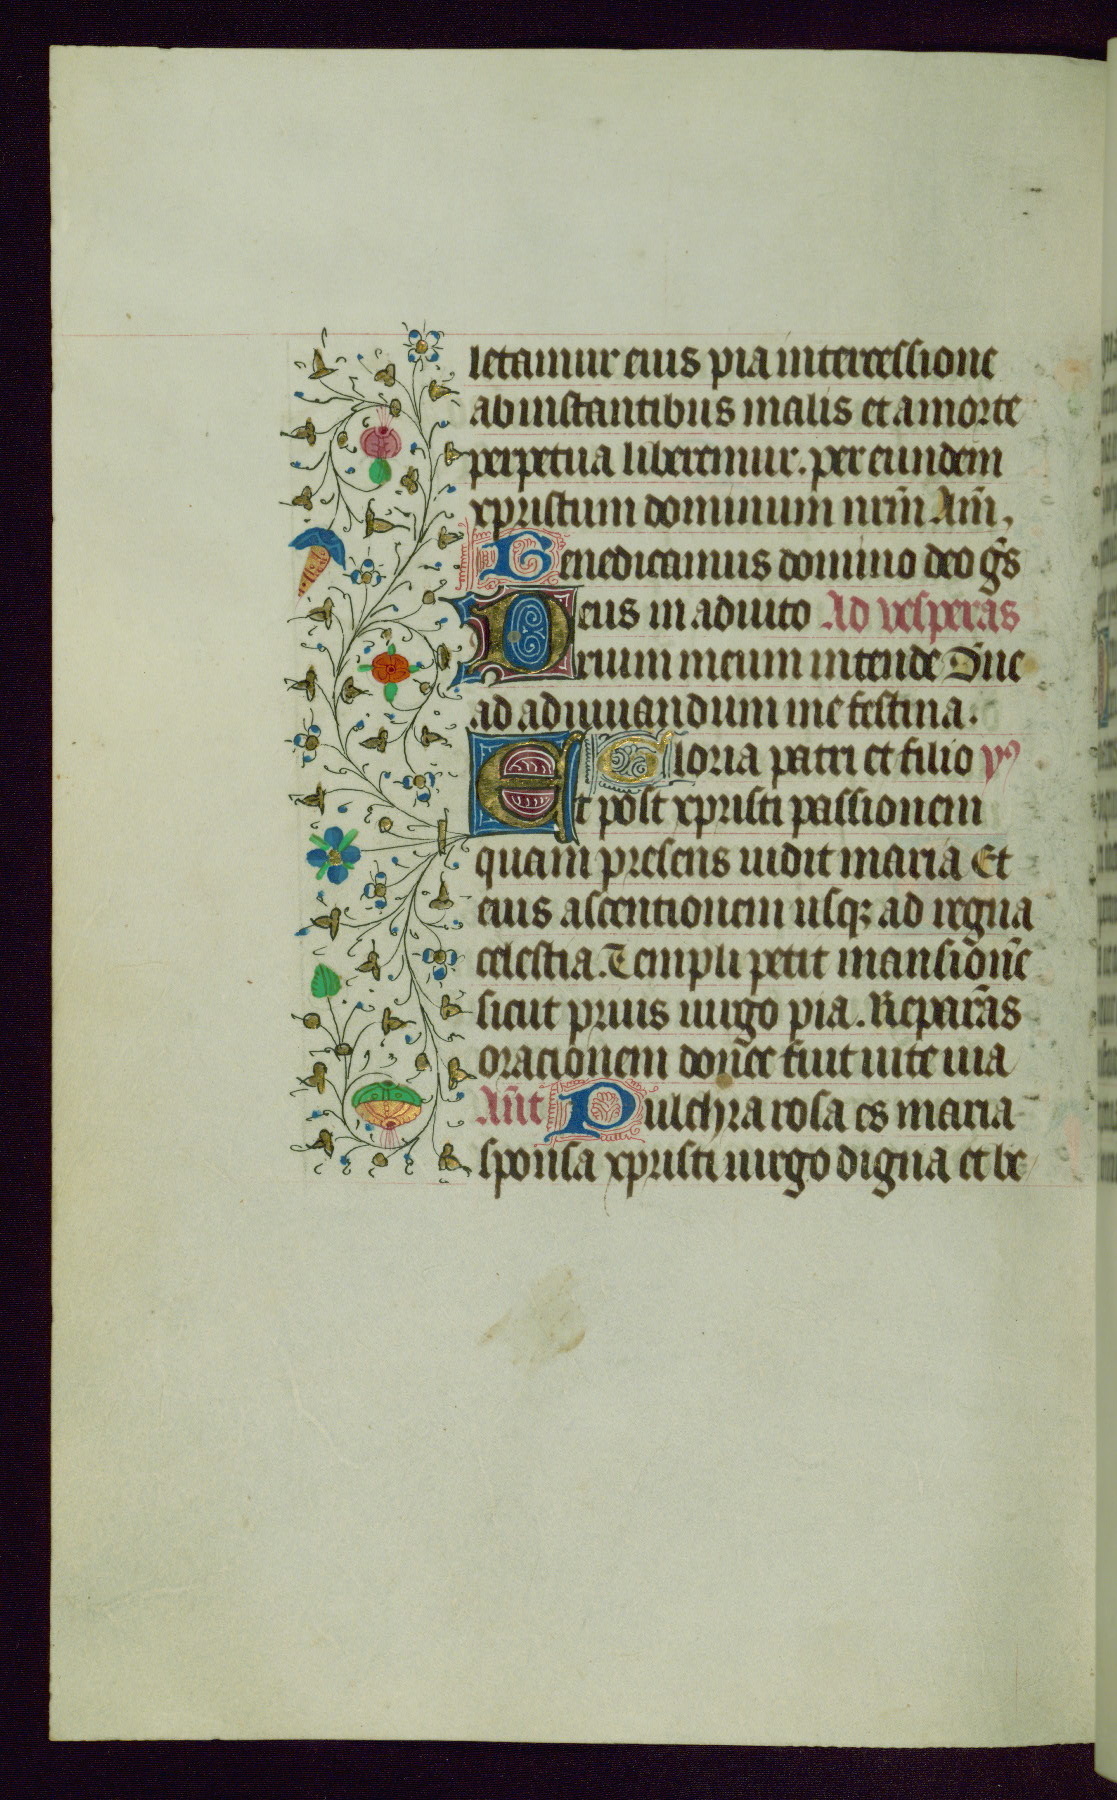 letamur eius pia intercessione
ab instantibus malis et a morte
perpetua liberemur. per eundem
xpristum dominum nrm̄ Am̄,
Benedicamus domino deo gr̄s
Deus in adiuto Ad vesperas
rium meum intende Dn̄e
ad adiuuandum me festina.
Gloria patri et filio
Et post xpristi passionem
quam presens uidit maria Et
eius ascentionem usqꝫ ad regna
celestia. Templi petit mansion̄e
sicut prius uirgo pia. Repar̄as
oracionem don̄ec fuit uite uia
An̄t Pulchra rosa es maria
sponsa xpristi uirgo digna et be